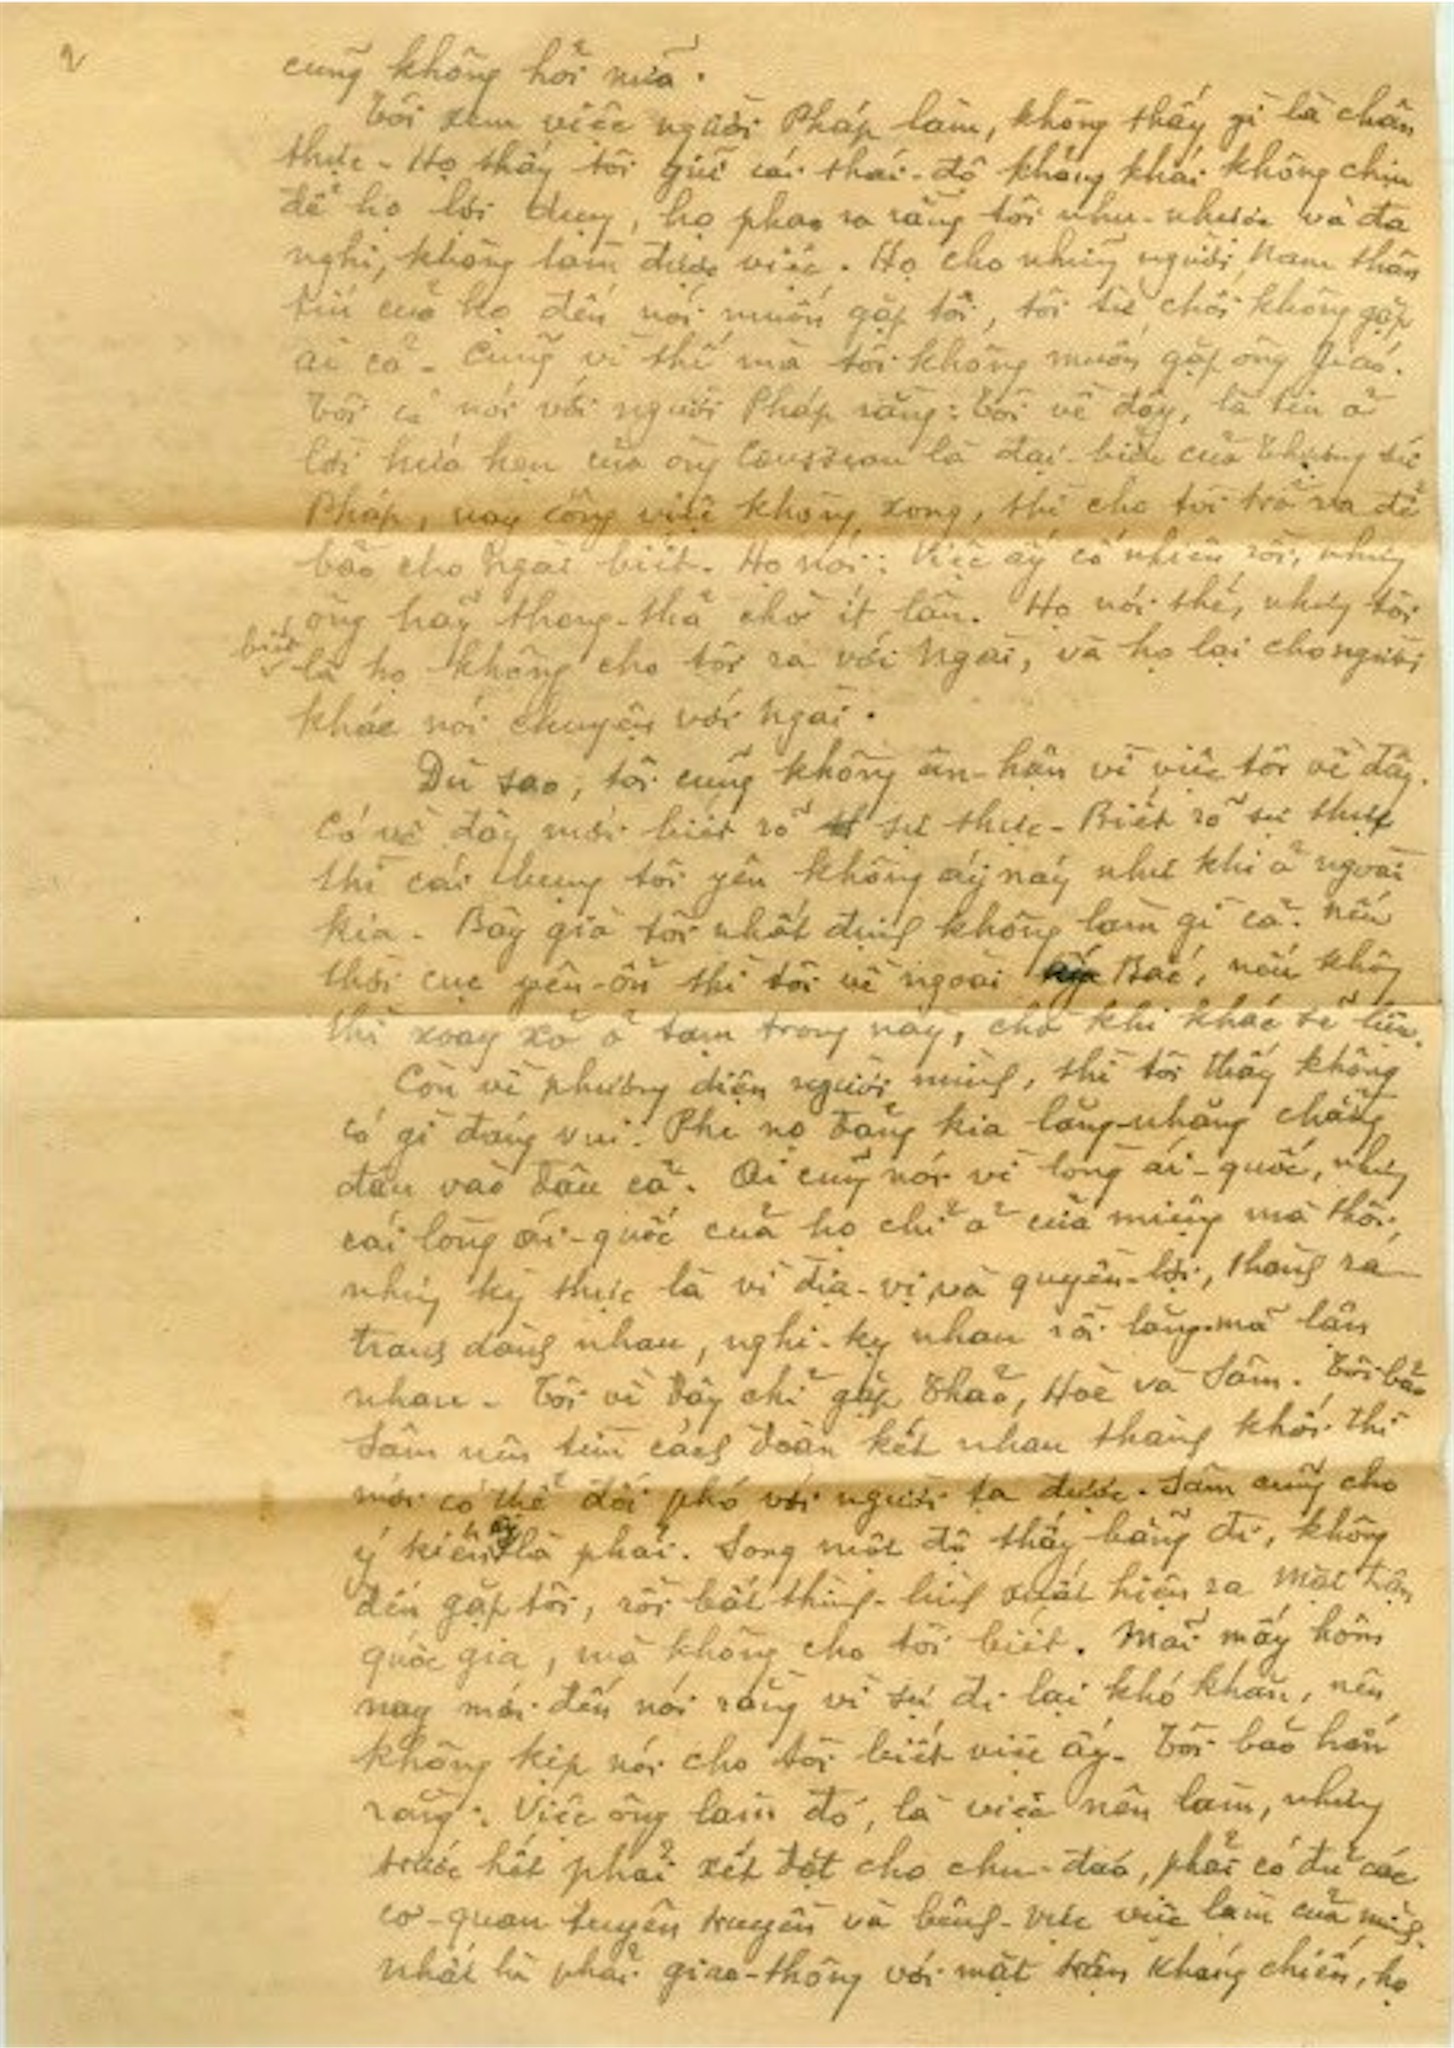 2
cũng không hỏi nữa.
Tôi xem việc người Pháp làm, không thấy gì là chân
thực - Họ thấy tôi giữ cái thái-độ khảng khái không chịu
để họ lợi dụng, họ phao ra rằng tôi nhu-nhược và đa
nghi, không làm được việc. Họ cho những người Nam thân
tín của họ đến nói muốn gặp tôi, tôi từ chối không gặp
ai cả - Cũng vì thế mà tôi không muốn gặp ông
Tôi có nói với người Pháp rằng: Tôi về đây, là tin ở
lời hứa hẹn của ông Cousseau là đại-biểu của Thượng sứ
Pháp, nay công việc không xong, thì cho tôi trở ra để
bảo cho Ngài biết. Họ nói: Việc ấy cố nhiên rồi, nhưng
ông hãy thong-thả chờ ít lâu. Họ nói thế, nhưng tôi
biết là họ không cho tôi ra với Ngài, và họ lại cho người
khác nói chuyện với Ngài.
Dù sao, tôi cũng không ân-hận về việc tôi về đây.
Có về đây mới biết rõ sự thực - Biết rõ sự thực
thì cái bụng tôi yên không áy náy như khi ở ngoài
kia - Bây giờ tôi nhất định không làm gì cả. Nếu
thời cục yên-ổn thì tôi về ngoài Bắc, nếu không
thì xoay xở ở tạm trong này, chờ khi khác sẽ liệu.
Còn về phương diện người mình, thì tôi thấy không
có gì đáng vui. Phe nọ đảng kia lăng-nhăng chẳng
đâu vào đâu cả. Ai cũng nói vì lòng ái-quốc, nhưng
cái lòng ái-quốc của họ chỉ ở cửa miệng mà thôi,
nhưng kỳ thực là vì địa-vị và quyền-lợi, thành ra
tranh dành nhau, nghi-kỵ nhau rồi lăng-mạ lẫn
nhau - Tôi về đây chỉ gặp Thảo, Hoè và Sâm. Tôi bảo
Sâm nên tìm cách đoàn kết nhau thành khối thì
mới có thể đối phó với người ta được. Sâm cũng cho
ý kiến ấy là phải. Song một độ thấy bẵng đi, không
đến gặp tôi, rồi bất thình-lình xuất hiện ra Mặt trận
quốc gia, mà không cho tôi biết. Mãi mấy hôm
nay mới đến nói rằng vì sự đi lại khó khăn, nên
không kịp nói cho tôi biết việc ấy - Tôi bảo hắn
rằng: Việc ông làm đó, là việc nên làm, nhưng
trước hết phải xét đặt cho chu-đáo, phải có đủ các
cơ-quan tuyên truyền và bênh-vực việc làm của mình,
nhất là phải giao-thông với mặt trận kháng chiến, họ